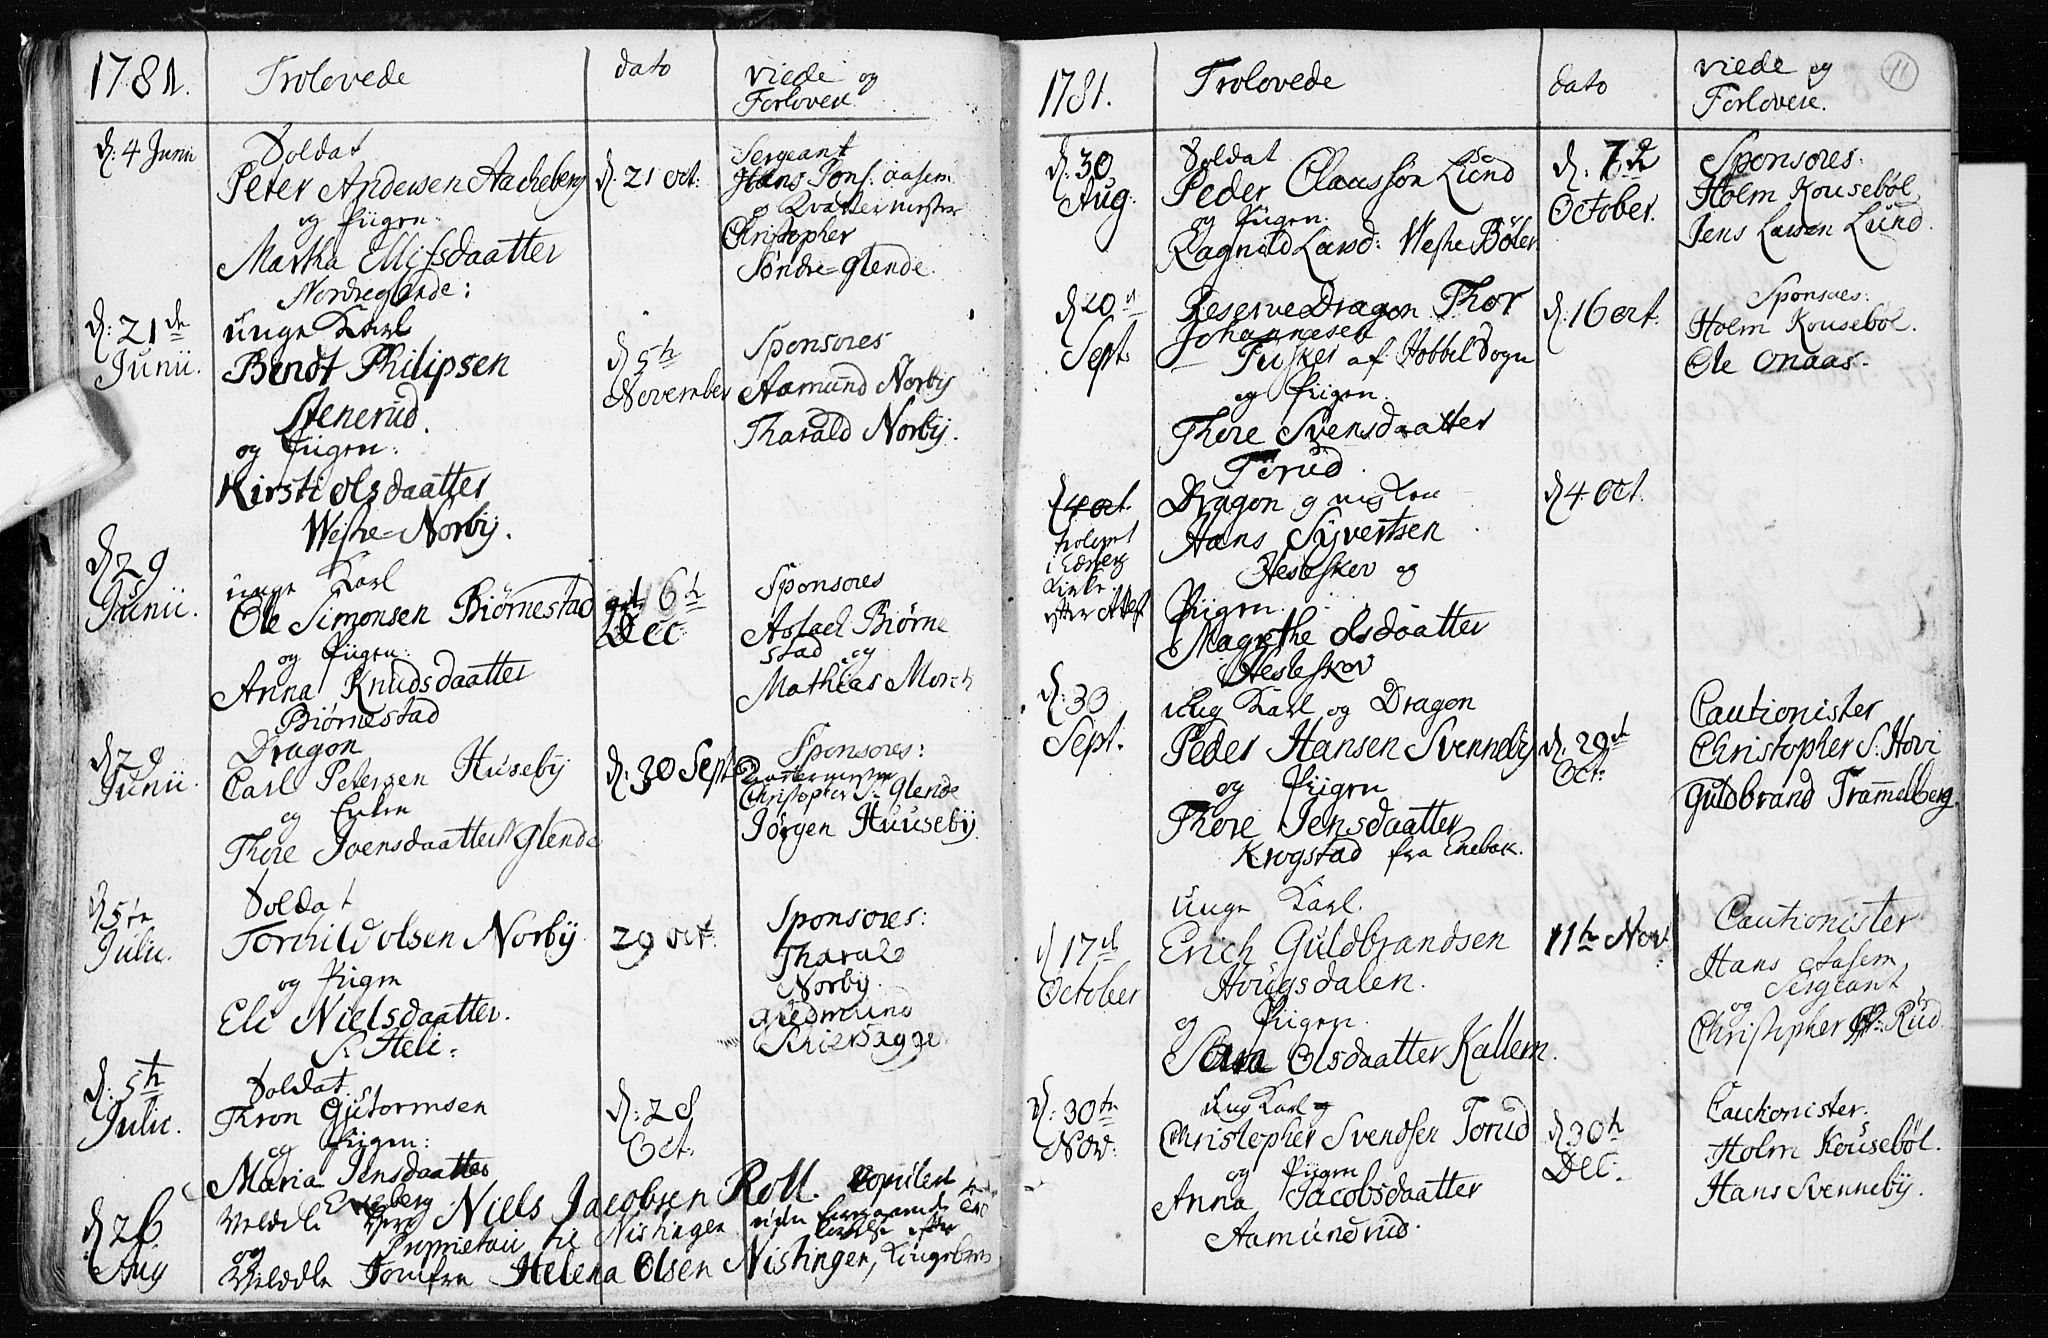 1781.
Trolovede
dato
viede og
Forlovere
d: 4 Junii
Soldat
Peter Andersen Aacheberg
og Pigen:
Martha Ellifsdaatter
Nordreglende:
d: 21 oct:
Sergeant
Hans Jons: aasem
og Qvartermester
Christopher
Søndre=glende.
d: 21de
Junii.
unge Karl
Bendt Philipsen
Stenerud.
og Pigen:
Kirsti olsdaatter
Westre=Norbÿ.
d 5th
November
Sponsores
Aamund Norbÿ
Tharald Norbÿ.
d 29
Junii.
unge Karl
Ole Simonsen Biørnestad
og Pigen:
Anna Knudsdaatter
Biørnestad
16th
Dec:
Sponsores
Aslach Biørne
stad og
Mathias Morch
d 29
Junii.
Dragon
Carl Petersen Husebÿ
og Enken
Thore Joensdaatter Glende
d: 30 Sept
Sponsores:
Qvartermester
Christopher Sr Glende
Jørgen Huusebÿ.
d 5te
Julii.
Soldat
Torchild olsen Norbÿ
og Pigen
Eli Nielsdaatter.
S: Heli:
29 oct:
Sponsores:
Tharald
Norbÿ.
Aamund
d: 5th
Julii.
Soldat
Thron Guttormsen
og Pigen:
Maria Jensdaatter
Eneberg
d: 28
Oct.
d 26
Aug
Velædle Herr Niels Jacobsen Roll. Copuleret
Proprietair til Nistingen
og
Velædle Jomfru Helena Olsen Nistingen,
1781.
Trolovede
dato
viede og
Forlovere.
11
d: 30
Aug:
Soldat
Peder Clausson Lund
og Pigen.
Ragnild Larsd: Westre Bøler
d: 7de
October.
Sponsores:
Holm Kousebøl
Jens Larsen Lund.
d 20d
Sept:
Reserve Dragon Thor
Johannesen
Fusker af Hobbel Sogn
og Pigen.
Thore Svensdaatter
Torud.
d. 16 oct.
Sponsores:
Holm Kousebøl.
Ole Onaas.
d 4 oct.
trolovet
i
Kirke
efter Attest
Dragon og
Hans Sÿvertsen
Hesleskov og
Pigen.
Magrethe olsdaatter
Hesleskov
d 4 Oct.
d: 30
Sept:
Ung Karl og Dragon
Peder Hansen Svennebÿ
og Pigen
Thore Jensdaatter
Krogstad fra Enebak.
d. 29d
Oct:
Cautionister
Christopher S: Hovi
Guldbrand Trammelberg.
d 17d
October
Unge Karl.
Erich Guldbrandsen
Hougsdalen.
og Pigen.
Sara Olsdaatter Kallem.
11te Nov:
Cautionister
Hans Aasem
Sergeant
og
Christopher Rud
d: 30te
Nov:
Ung Karl
Christopher Svendsen Torud
og Pigen
Anna Jacobsdaatter
Aamundrud.
d 30th
Dec:
Cautionister.
Holm Kousebøl.
Hans Svennebÿ.